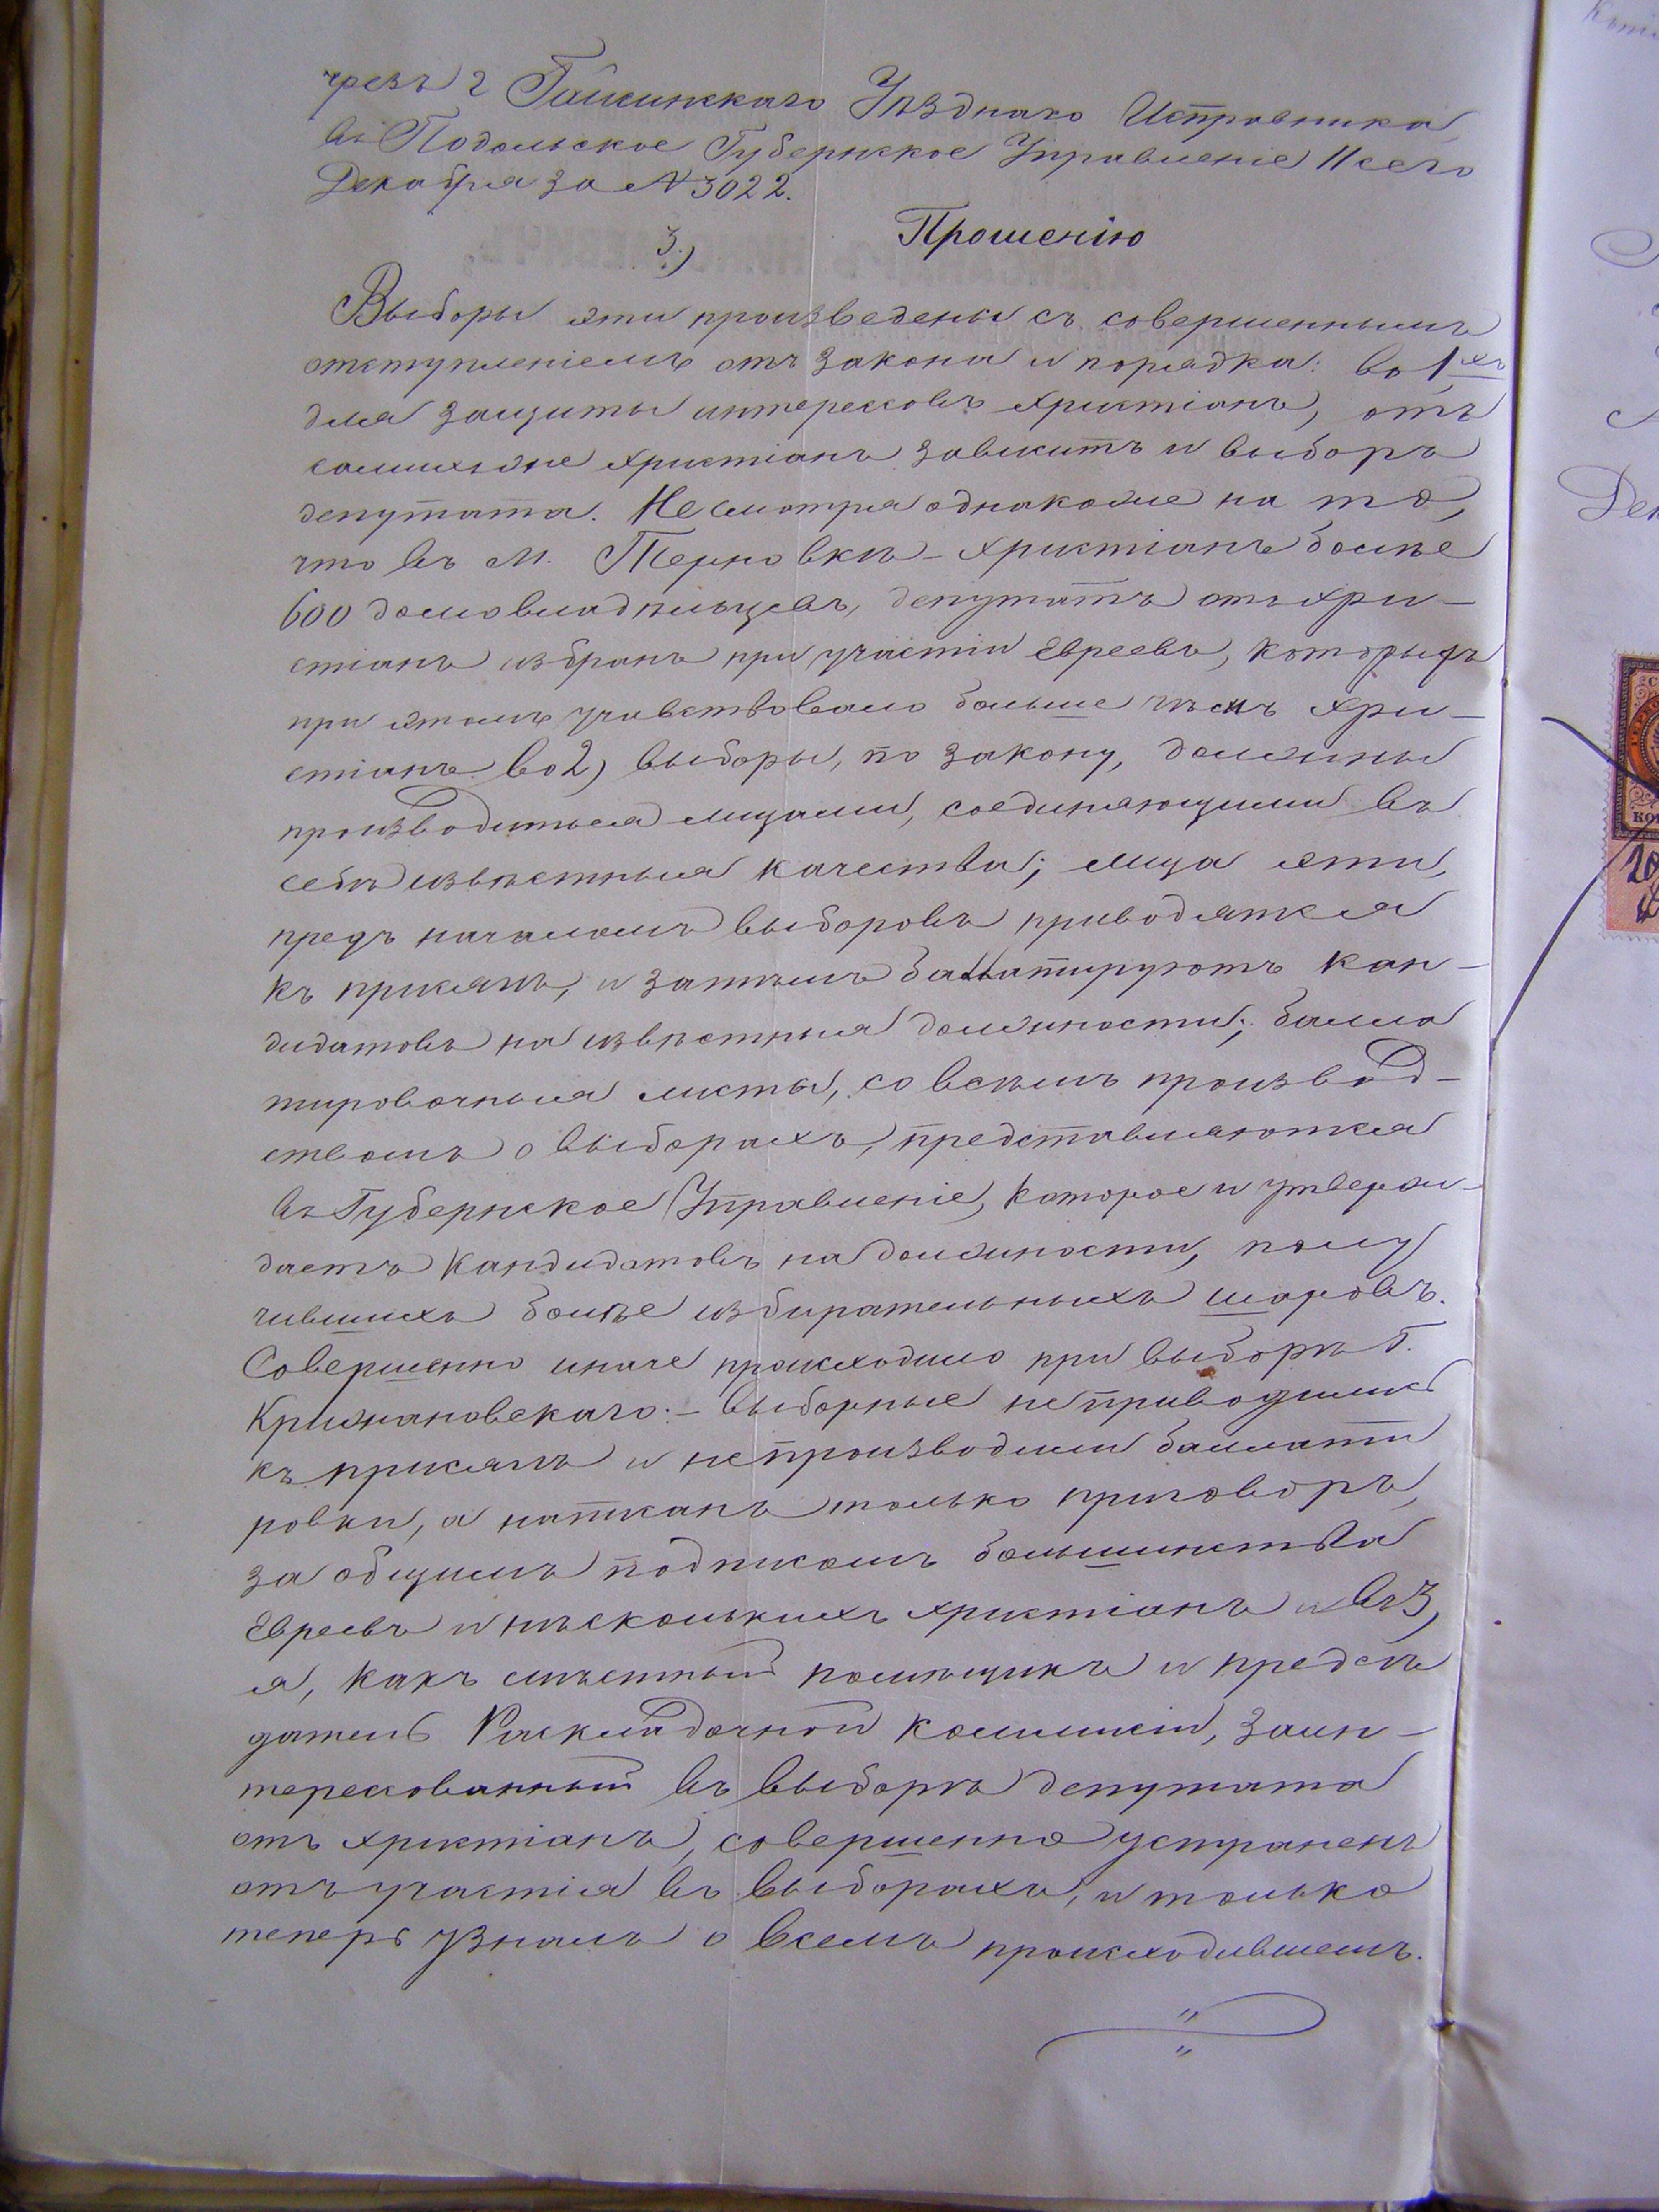 чрезъ г Гайсинскаго Уѣзднаго Исправника
въ Подольское Губернское Управленіе 11 сего
Декабря за № 3022.
3.) Прошенію
Выборы эти произведены съ совершеннымъ
отступленіемъ отъ закона и порядка: во 1хъ
для защиты интерессовъ христіанъ, отъ
самихъ же христіанъ зависитъ и выборъ
депутата. Не смотря однакоже на то,
что въ м. Терновкѣ - христіанъ болѣе
600 домовладѣльцевъ, депутатъ отъ хри-
стіанъ избранъ при участіи Евреевъ, которыхъ
при этомъ учавствовало больше чѣмъ хри-
стіанъ во 2) выборы, по закону, должны
производиться лицами, соединяющими въ
себѣ извѣстныя качества; лица эти,
предъ началомъ выборовъ приводятся
къ присягѣ, и затѣмъ баллатируютъ кан-
дидатовъ на извѣстныя должности; балло
тировочныя листы, со всѣмъ производ-
ствомъ о выборахъ, представляются
въ Губернское Управленіе, которое и утверж-
даетъ кандидатовъ на должности, полу
чившихъ болѣе избирательныхъ шаровъ.
Совершенно иначе происходило при выборѣ Г.
Крижановскаго: - выборные не приводились
къ присягѣ и не производили баллати
ровки, а написанъ только приговоръ,
за общимъ подписомъ большинства
Евреевъ и нѣсколькихъ христіанъ и въ 3,
я, какъ мѣстный помѣщикъ и предсѣ
датель Раскладочной коммисіи, заин-
терессованный въ выборѣ депутата
отъ христіанъ, совершенно устраненъ
отъ участія въ выборахъ, и только
теперь узналъ о всемъ происходившемъ.